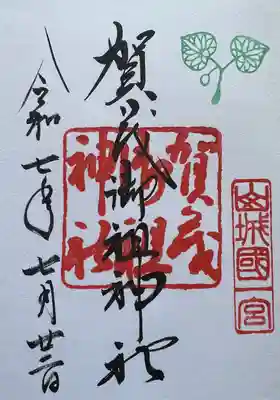 山城國
一宮
賀茂御祖神社
賀茂
御祖
神社
令和七年七月廿二日